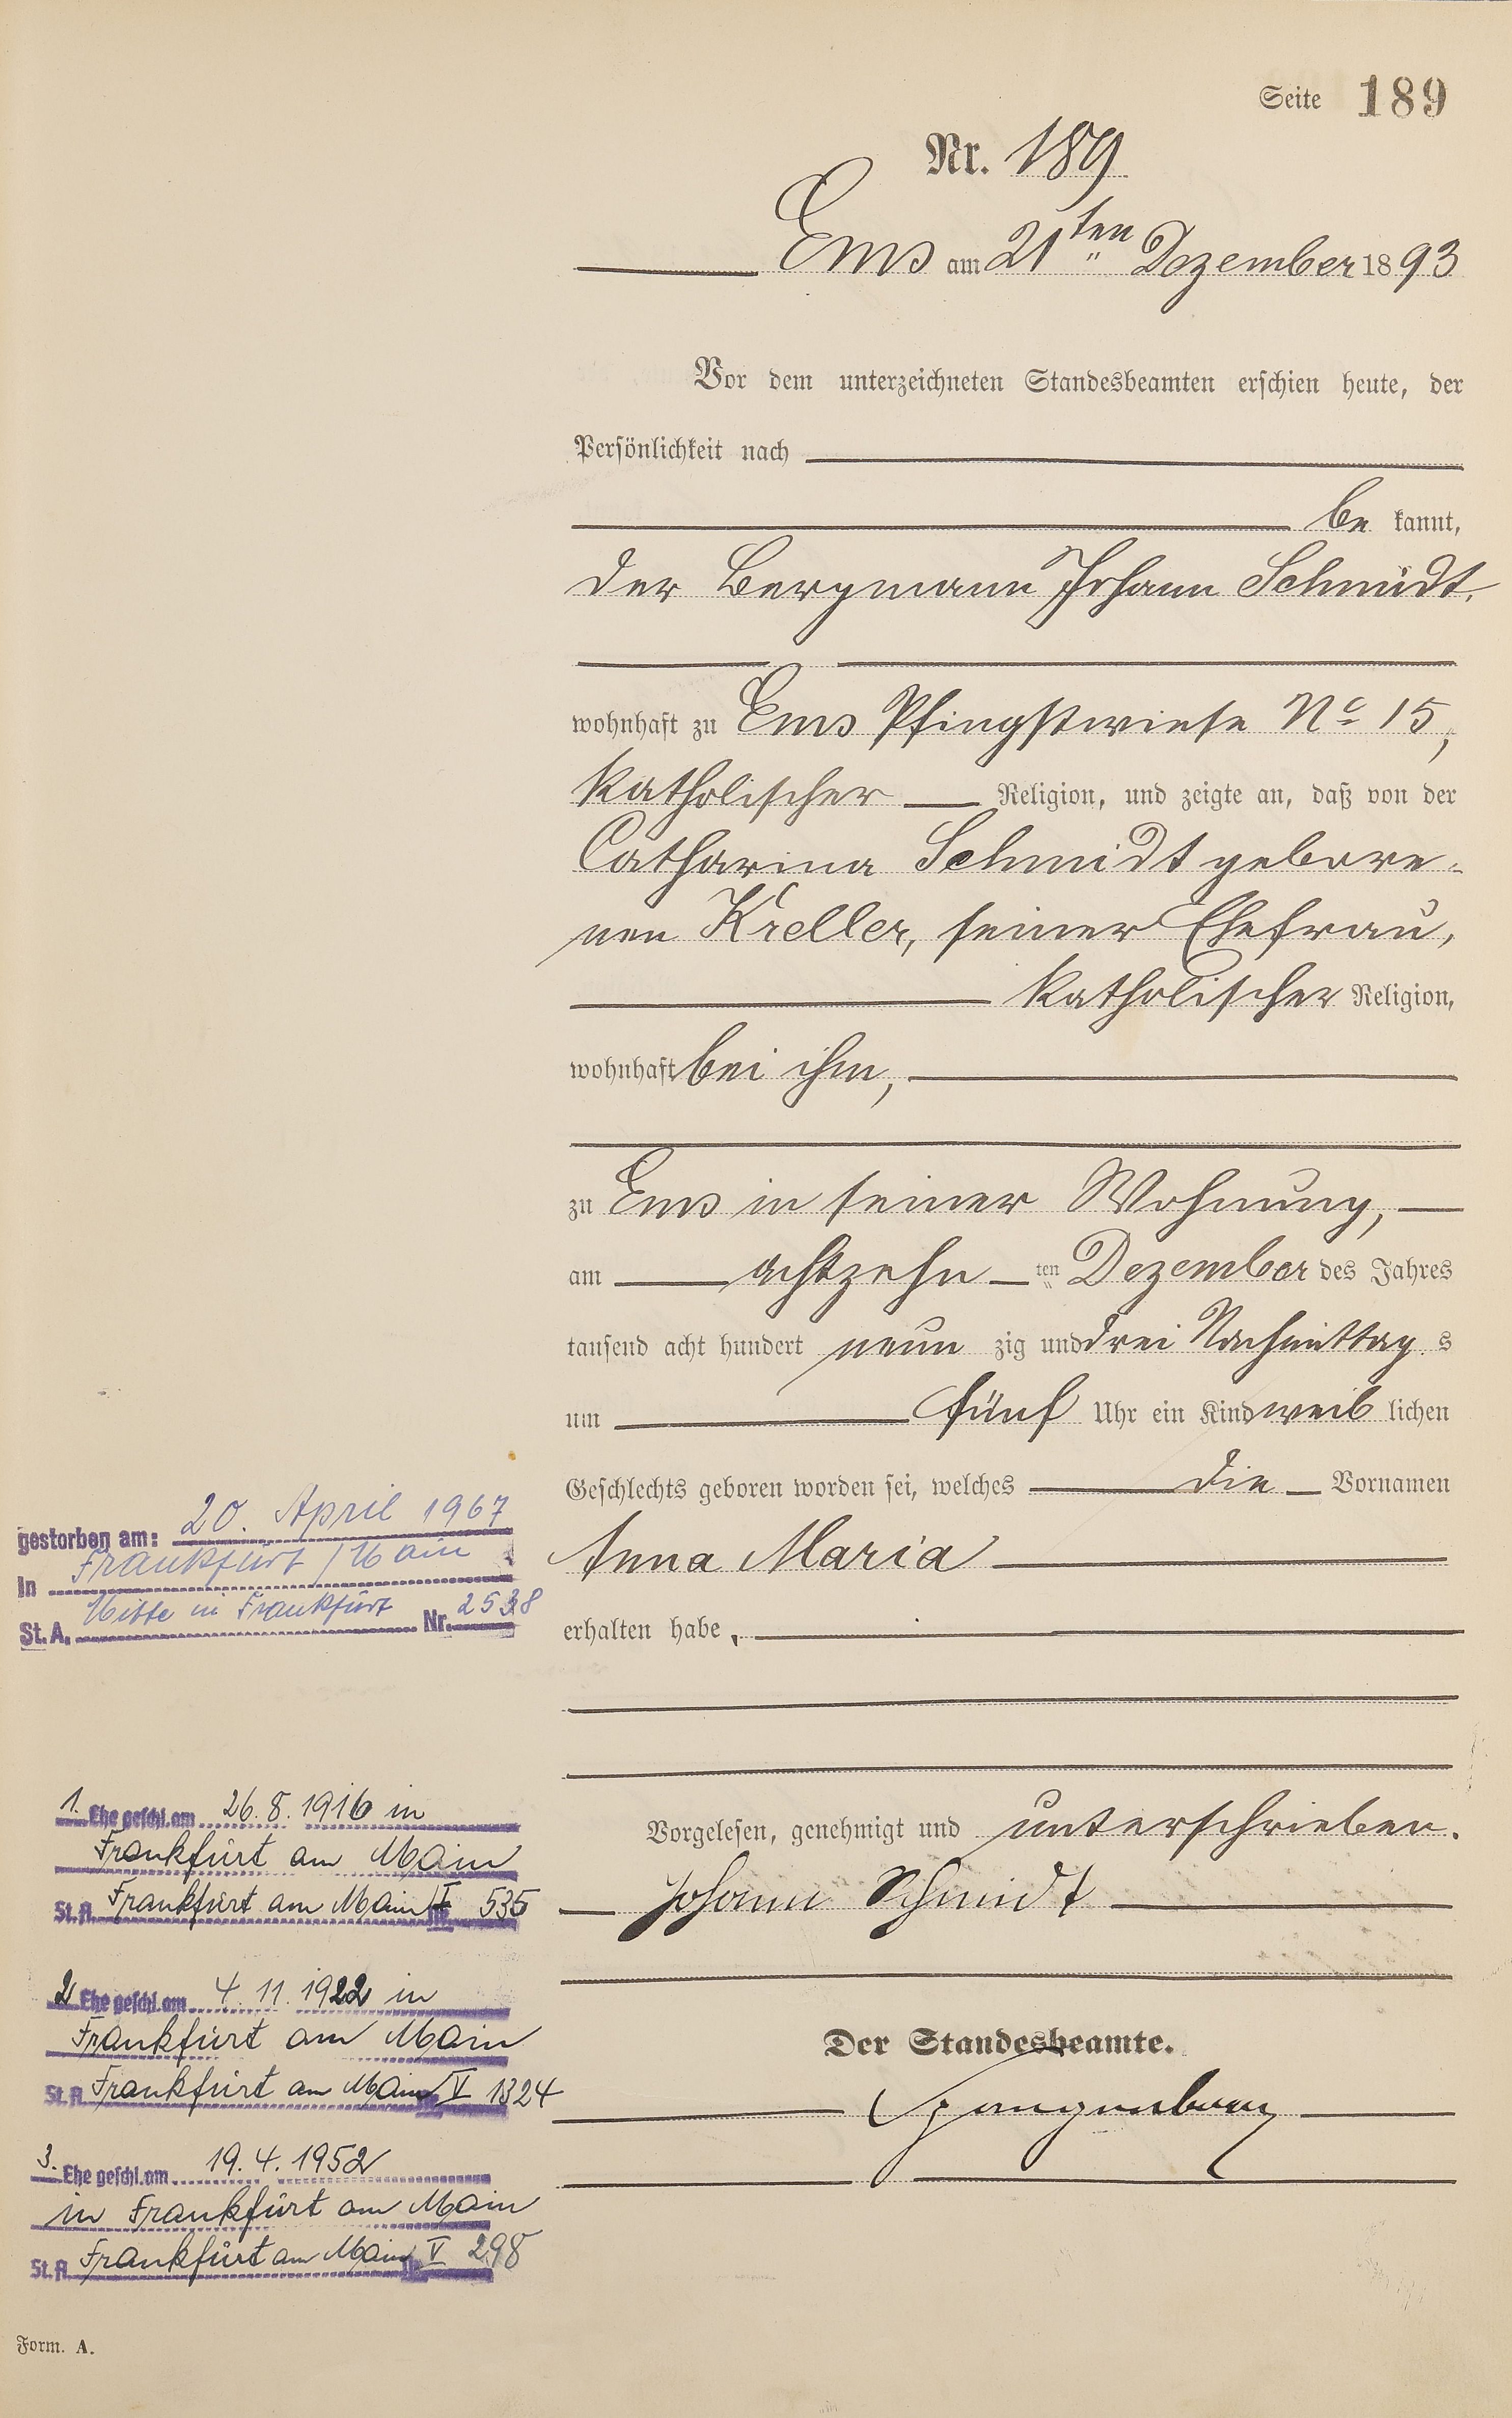 Seite 189
Nr. 189
Ems am 21ten Dezember 1893
Vor dem unterzeichneten Standesbeamten erschien heute, der
Persönlichkeit nach
be kannt,
der Bergmann Johann Schmidt,
wohnhaft zu Ems Pfingstwiese No 15,
katholischer Religion, und zeigte an, daß von der
Catharina Schmidt gebore-
nen Kreller, seiner Ehefrau,
katholischer Religion,
wohnhaft bei ihm,
zu Ems in seiner Wohnung,
am achtzehn ten Dezember des Jahres
tausend acht hundert neun zig und drei Nachmittag s
um fünf Uhr ein Kind weib lichen
Geschlechts geboren worden sei, welches die Vornamen
Anna Maria
erhalten habe,
Vorgelesen, genehmigt und unterschrieben.
Johann Schmidt
Der Standesbeamte.
Spangenberg
gestorben am: 20. April 1967
in Frankfurt / Main
St. A. Mitte in Frankfurt Nr. 2538
1. Ehe geschl. am 26. 8. 1916 in
Frankfurt am Main
St. A. Frankfurt am Main I Nr. 535
2 Ehe geschl. am 4. 11. 1922 in
Frankfurt am Main
St. A. Frankfurt am Main Nr. V 1324
3. Ehe geschl. am 19. 4. 1952
in Frankfurt am Main
St. A. Frankfurt am Main Nr. V 298
Form. A.